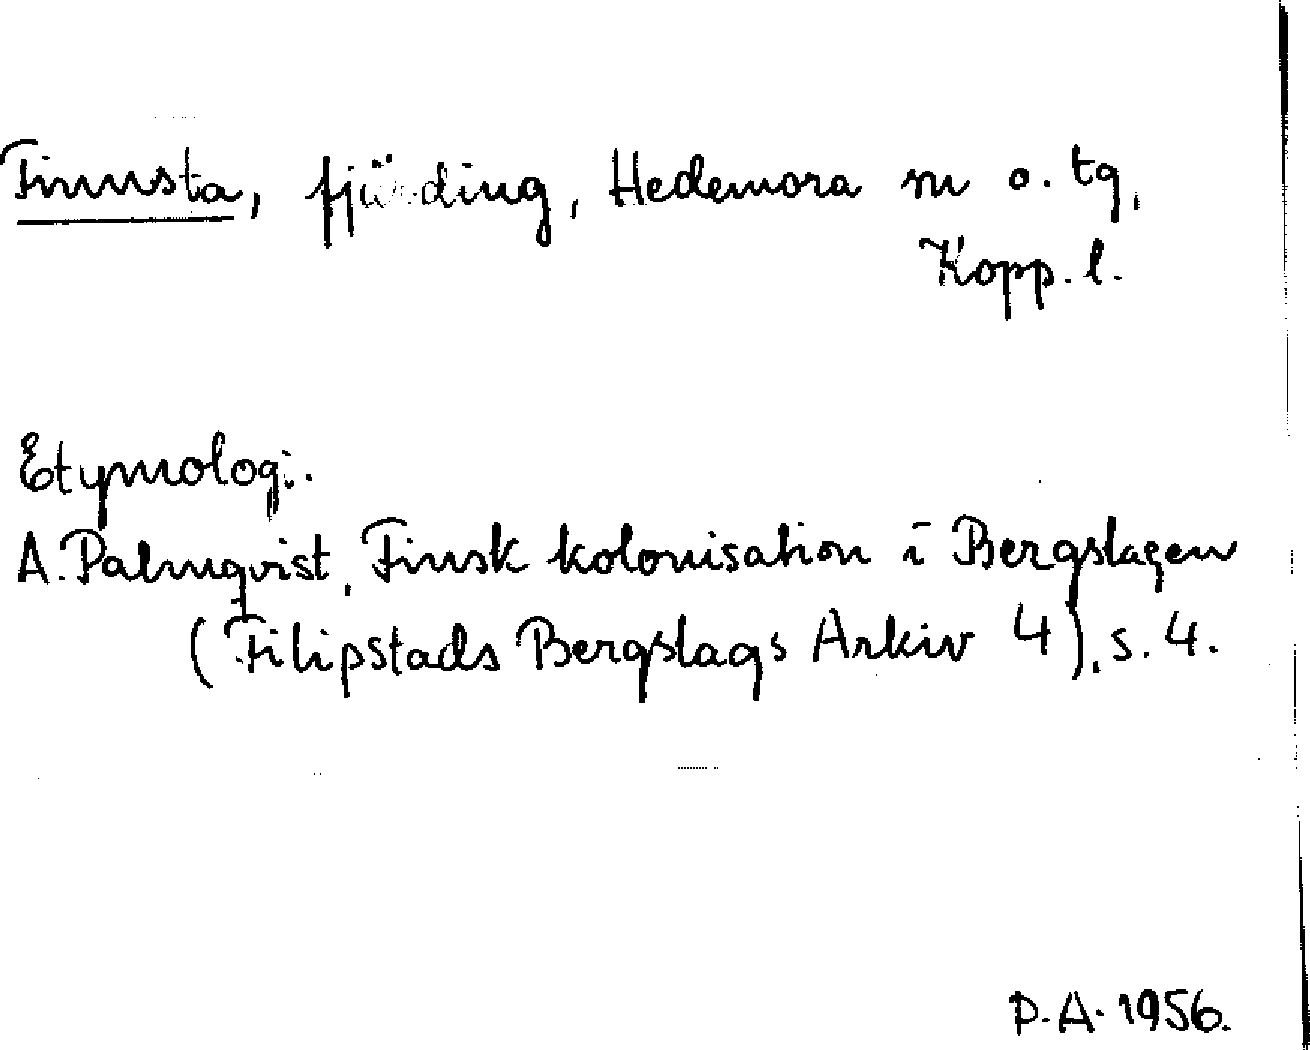 Finnsta, fjärding, Hedemora sn o. tg,
Kopp. l.
Etymologi.
A. Palmqvist, Finsk kolonisation i Bergslagen
(Filipstads Bergslags Arkiv 4), s. 4.
P.A. 1956.